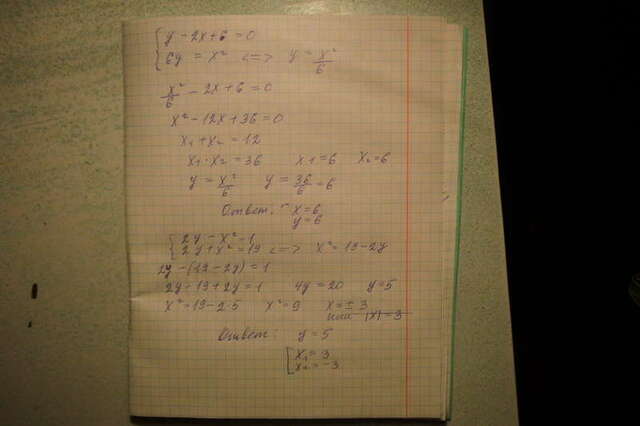 { y - 2x + 6 = 0
{ 6y = x² <=> y = x²/6
x²/6 - 2x + 6 = 0
x² - 12x + 36 = 0
x₁ + x₂ = 12
x₁ · x₂ = 36 x₁ = 6 x₂ = 6
y = x²/6 y = 36/6 = 6
Ответ: x = 6
y = 6
{ 2y - x² = 1
{ 2y + x² = 19 <=> x² = 19 - 2y
2y - (19 - 2y) = 1
2y - 19 + 2y = 1 4y = 20 y = 5
x² = 19 - 2·5 x² = 9 x = ± 3
или |x| = 3
Ответ: y = 5
[ x₁ = 3
x₂ = -3